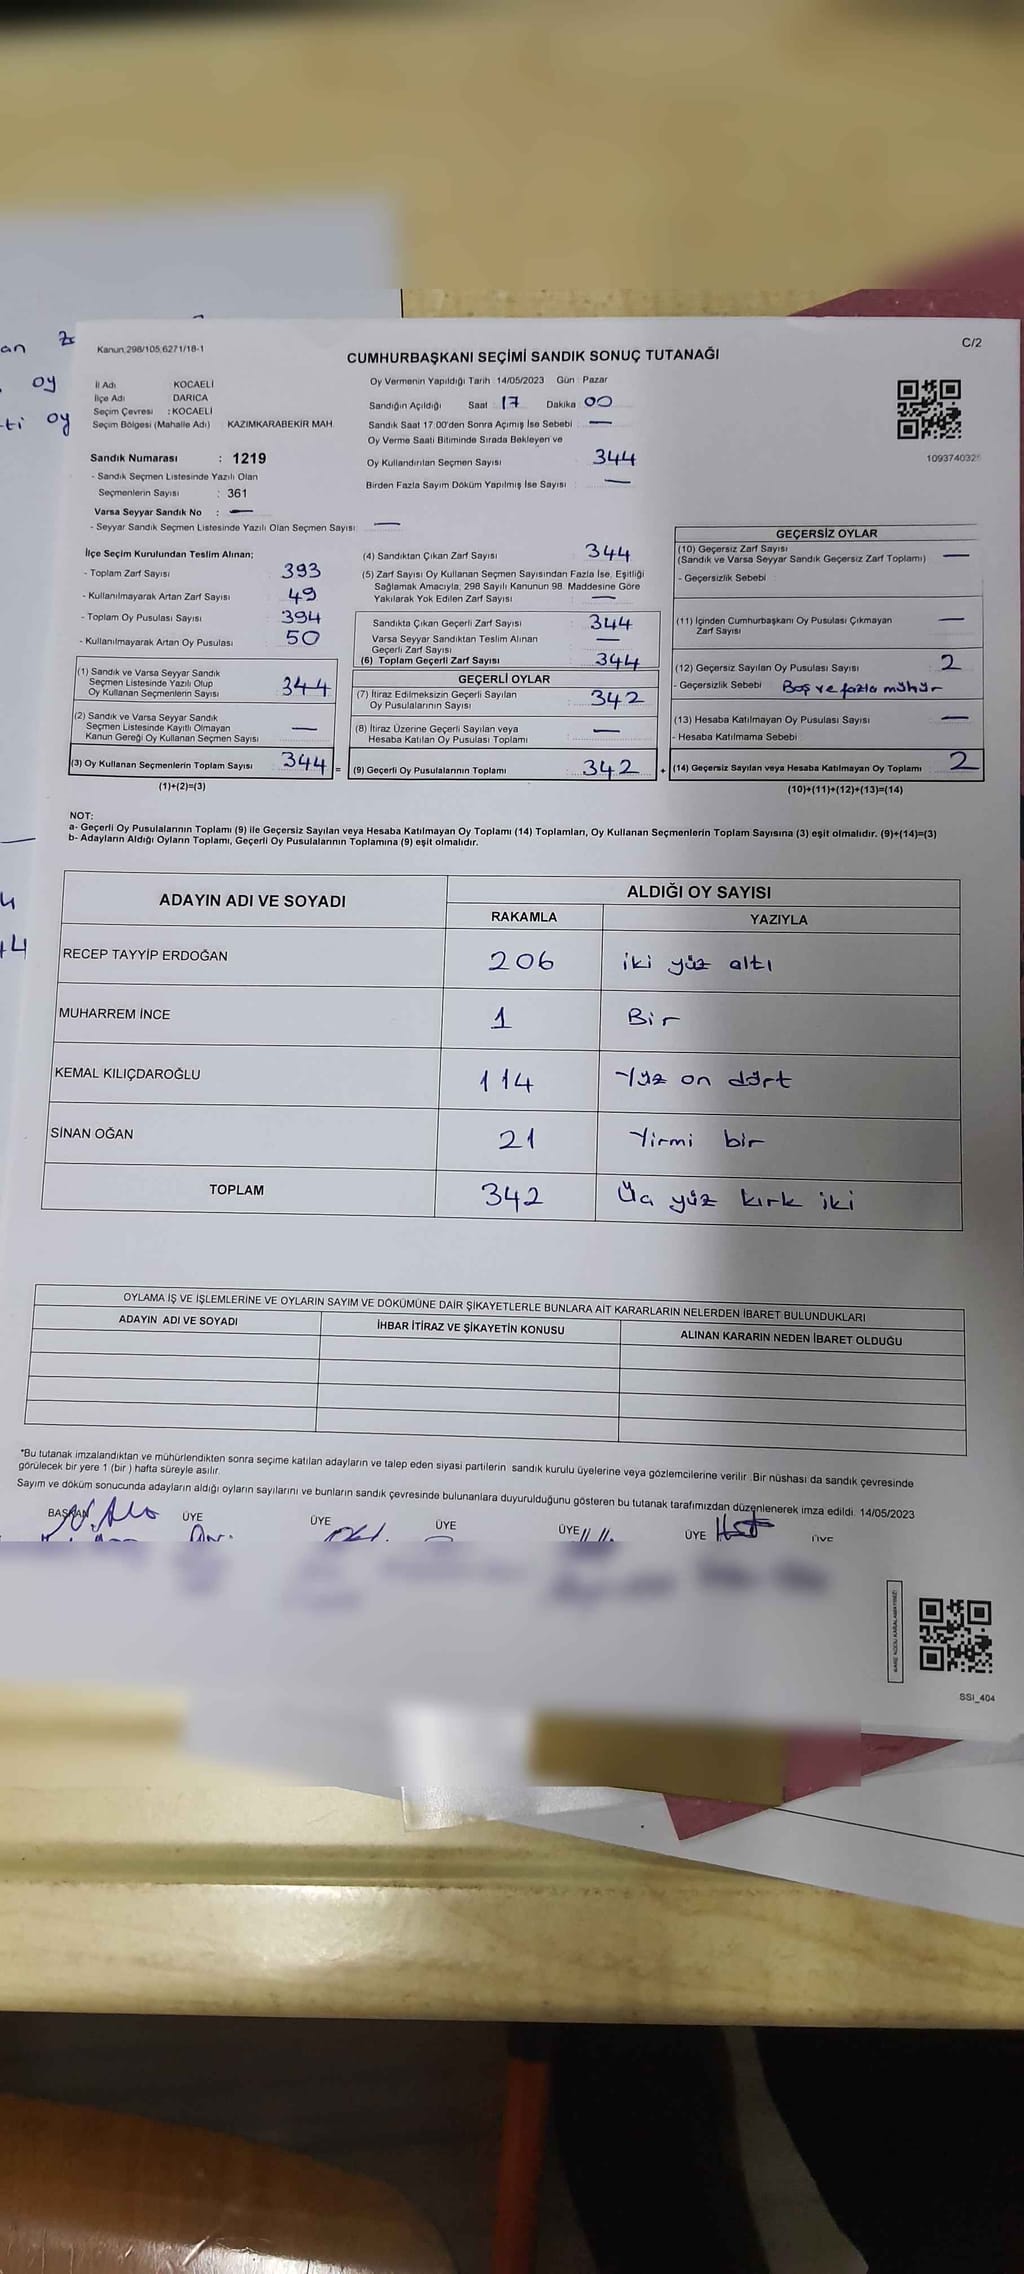 an
oy
ti oy
Kanun;298/105,6271/18-1
C/2
CUMHURBAŞKANI SEÇİMİ SANDIK SONUÇ TUTANAĞI
İl Adı KOCAELİ
İlçe Adı DARICA
Seçim Çevresi : KOCAELİ
Seçim Bölgesi (Mahalle Adı) KAZIMKARABEKİR MAH.
Oy Vermenin Yapıldığı Tarih 14/05/2023 Gün : Pazar
Sandığın Açıldığı Saat 17 Dakika 00
Sandık Saat 17:00'den Sonra Açımış İse Sebebi —
Oy Verme Saati Bitiminde Sırada Bekleyen ve
Oy Kullandırılan Seçmen Sayısı 344
Birden Fazla Sayım Döküm Yapılmış İse Sayısı —
109374032
Sandık Numarası : 1219
- Sandık Seçmen Listesinde Yazılı Olan
Seçmenlerin Sayısı : 361
Varsa Seyyar Sandık No : —
- Seyyar Sandık Seçmen Listesinde Yazılı Olan Seçmen Sayısı —
İlçe Seçim Kurulundan Teslim Alınan;
- Toplam Zarf Sayısı 393
- Kullanılmayarak Artan Zarf Sayısı 49
- Toplam Oy Pusulası Sayısı 394
- Kullanılmayarak Artan Oy Pusulası 50
(1) Sandık ve Varsa Seyyar Sandık
Seçmen Listesinde Yazılı Olup
Oy Kullanan Seçmenlerin Sayısı 344
(2) Sandık ve Varsa Seyyar Sandık
Seçmen Listesinde Kayıtlı Olmayan
Kanun Gereği Oy Kullanan Seçmen Sayısı —
(3) Oy Kullanan Seçmenlerin Toplam Sayısı 344 =
(1)+(2)=(3)
(4) Sandıktan Çıkan Zarf Sayısı 344
(5) Zarf Sayısı Oy Kullanan Seçmen Sayısından Fazla İse, Eşitliği
Sağlamak Amacıyla, 298 Sayılı Kanunun 98. Maddesine Göre
Yakılarak Yok Edilen Zarf Sayısı —
Sandıkta Çıkan Geçerli Zarf Sayısı 344
Varsa Seyyar Sandıktan Teslim Alınan
Geçerli Zarf Sayısı —
(6) Toplam Geçerli Zarf Sayısı 344
GEÇERLİ OYLAR
(7) İtiraz Edilmeksizin Geçerli Sayılan
Oy Pusulalarının Sayısı 342
(8) İtiraz Üzerine Geçerli Sayılan veya
Hesaba Katılan Oy Pusulası Toplamı —
(9) Geçerli Oy Pusulalarının Toplamı 342 +
GEÇERSİZ OYLAR
(10) Geçersiz Zarf Sayısı
(Sandık ve Varsa Seyyar Sandık Geçersiz Zarf Toplamı) —
- Geçersizlik Sebebi
(11) İçinden Cumhurbaşkanı Oy Pusulası Çıkmayan
Zarf Sayısı —
(12) Geçersiz Sayılan Oy Pusulası Sayısı 2
- Geçersizlik Sebebi Boş ve fazla mühür
(13) Hesaba Katılmayan Oy Pusulası Sayısı —
- Hesaba Katılmama Sebebi
(14) Geçersiz Sayılan veya Hesaba Katılmayan Oy Toplamı 2
(10)+(11)+(12)+(13)=(14)
NOT:
a- Geçerli Oy Pusulalarının Toplamı (9) ile Geçersiz Sayılan veya Hesaba Katılmayan Oy Toplamı (14) Toplamları, Oy Kullanan Seçmenlerin Toplam Sayısına (3) eşit olmalıdır. (9)+(14)=(3)
b- Adayların Aldığı Oyların Toplamı, Geçerli Oy Pusulalarının Toplamına (9) eşit olmalıdır.
ADAYIN ADI VE SOYADI ALDIĞI OY SAYISI
RAKAMLA YAZIYLA
RECEP TAYYİP ERDOĞAN 206 iki yüz altı
MUHARREM İNCE 1 Bir
KEMAL KILIÇDAROĞLU 114 Yüz on dört
SİNAN OĞAN 21 Yirmi bir
TOPLAM 342 Üç yüz kırk iki
OYLAMA İŞ VE İŞLEMLERİNE VE OYLARIN SAYIM VE DÖKÜMÜNE DAİR ŞİKAYETLERLE BUNLARA AİT KARARLARIN NELERDEN İBARET BULUNDUKLARI
ADAYIN ADI VE SOYADI İHBAR İTİRAZ VE ŞİKAYETİN KONUSU ALINAN KARARIN NEDEN İBARET OLDUĞU
*Bu tutanak imzalandıktan ve mühürlendikten sonra seçime katılan adayların ve talep eden siyasi partilerin sandık kurulu üyelerine veya gözlemcilerine verilir. Bir nüshası da sandık çevresinde
görülecek bir yere 1 (bir) hafta süreyle asılır.
Sayım ve döküm sonucunda adayların aldığı oyların sayılarını ve bunların sandık çevresinde bulunanlara duyurulduğunu gösteren bu tutanak tarafımızdan düzenlenerek imza edildi. 14/05/2023
BAŞKAN ÜYE ÜYE ÜYE ÜYE ÜYE ÜYE
SSİ_404